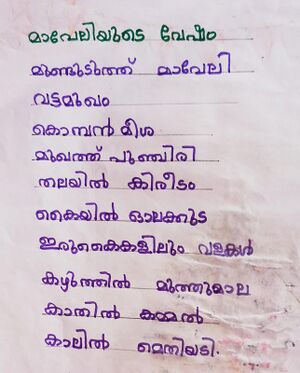 മാവേലിയുടെ വേഷം
മുണ്ടുടുത്ത് മാവേലി
വട്ടമുഖം
കൊമ്പൻ മീശ
മുഖത്ത് പുഞ്ചിരി
തലയിൽ കിരീടം
കൈയിൽ ഓലക്കുട
ഇരുകൈകളിലും വളകൾ
കഴുത്തിൽ മുത്തുമാല
കാതിൽ കമ്മൽ
കാലിൽ മെതിയടി.